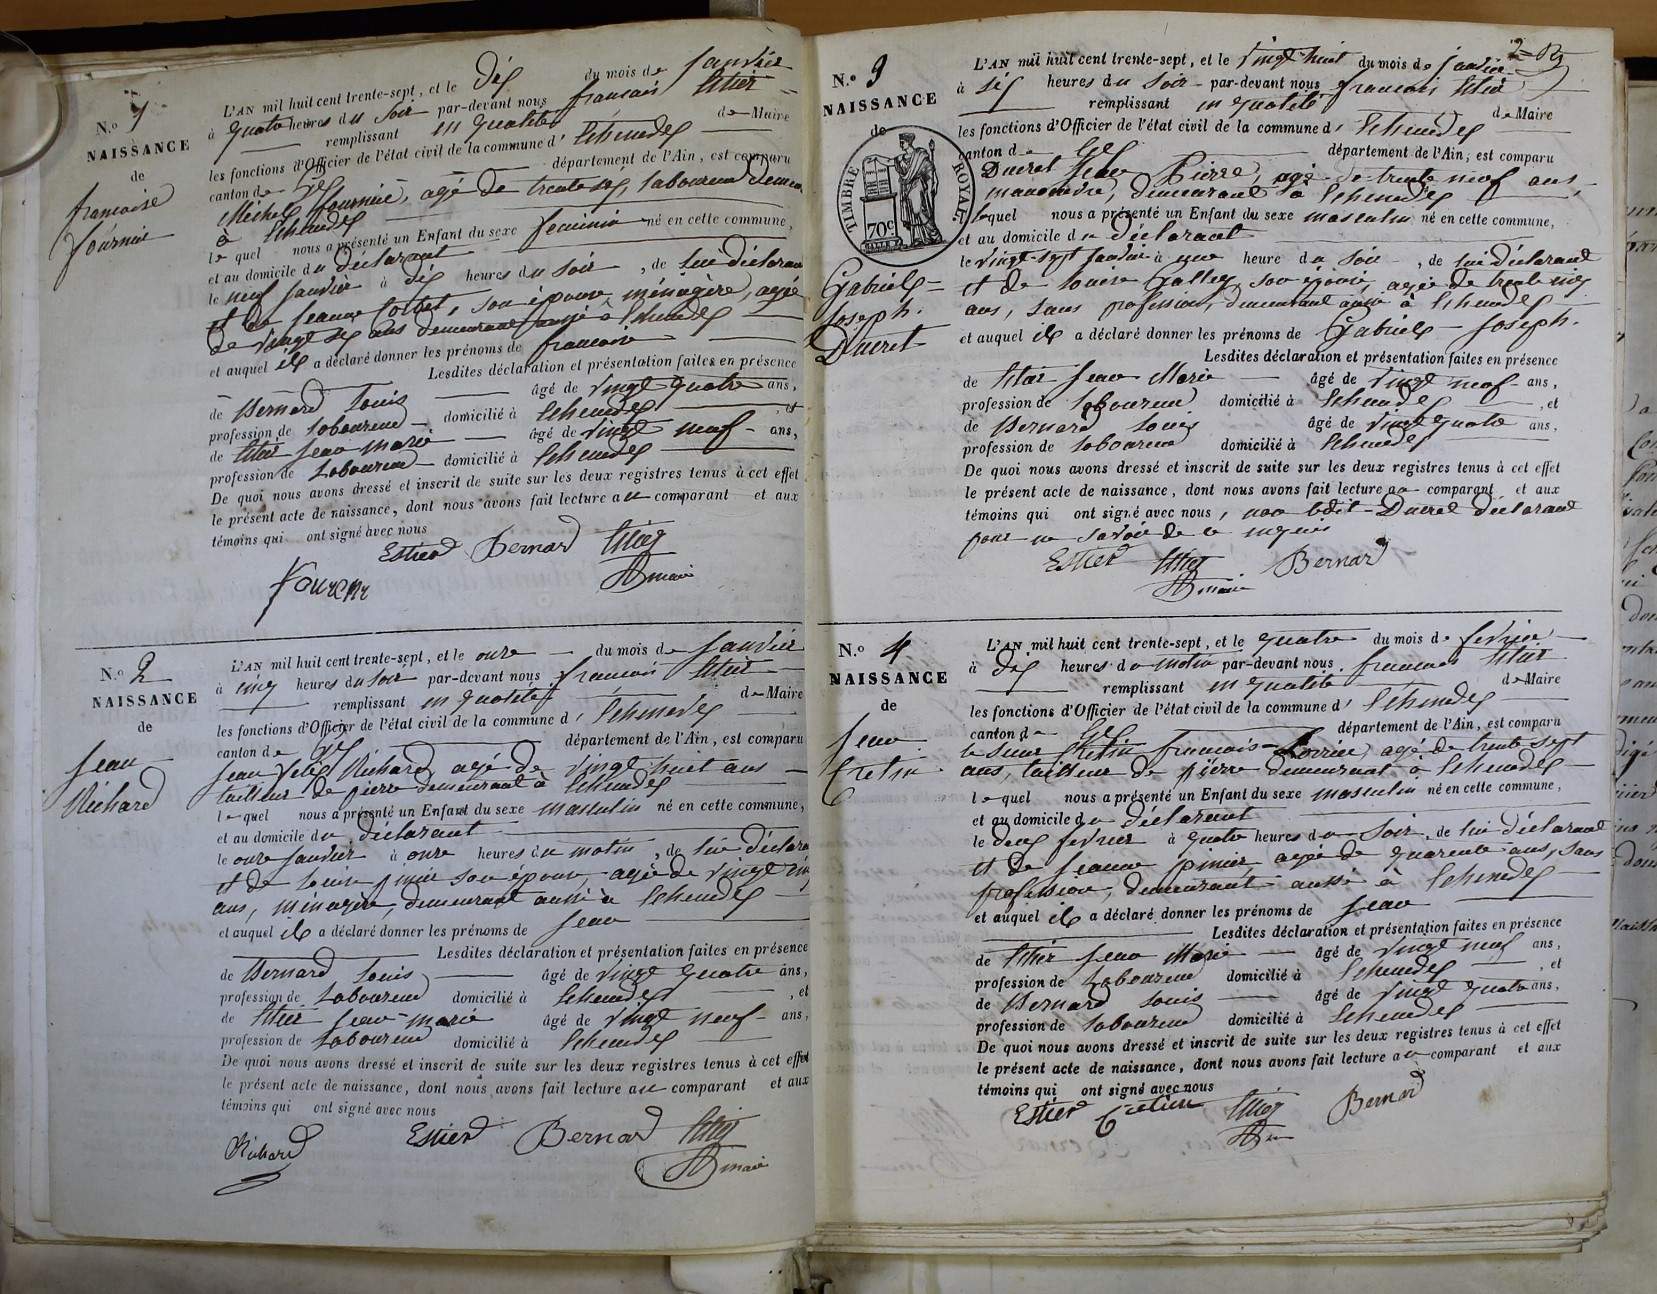 N.o 1
NAISSANCE
de
francoise
fournier
L'AN mil huit cent trente-sept, et le dix du mois de janvier
à quatre heures du soir par-devant nous francois
remplissant en qualité de Maire
les fonctions d'Officier de l'état civil de la commune d'
canton de Gex département de l'Ain, est comparu
Michel fournier, agé de trente six, laboureur
à
le quel nous a présenté un Enfant du sexe feminin né en cette commune,
et au domicile du déclarant
le neuf janvier à dix heures du soir, de lui déclarant
et de jeanne son épouse, ménagère, agée
de vingt six ans demeurant aussi à
et auquel il a déclaré donner les prénoms de francoise
Lesdites déclaration et présentation faites en présence
de Bernard Louis âgé de vingt quatre ans,
profession de laboureur domicilié à , et
de jean marie âgé de vingt neuf ans,
profession de Laboureur domicilié à
De quoi nous avons dressé et inscrit de suite sur les deux registres tenus à cet effet
le présent acte de naissance, dont nous avons fait lecture au comparant et aux
témoins qui ont signé avec nous
Bernard
maire
N.o 2
NAISSANCE
de
jean
Richard
L'AN mil huit cent trente-sept, et le onze du mois de janvier
à cinq heures du soir par-devant nous francois
remplissant en qualité de Maire
les fonctions d'Officier de l'état civil de la commune d'
canton de Gex département de l'Ain, est comparu
jean Richard agé de vingt huit ans
tailleur de pierre demeurant à
le quel nous a présenté un Enfant du sexe masculin né en cette commune,
et au domicile du déclarant
le onze janvier à onze heures du matin, de lui déclarant
et de son épouse, agée de vingt
ans, ménagère, demeurant aussi à
et auquel il a déclaré donner les prénoms de jean
Lesdites déclaration et présentation faites en présence
de Bernard Louis âgé de vingt quatre ans,
profession de Laboureur domicilié à , et
de jean-marie âgé de vingt neuf ans,
profession de Laboureur domicilié à
De quoi nous avons dressé et inscrit de suite sur les deux registres tenus à cet effet
le présent acte de naissance, dont nous avons fait lecture au comparant et aux
témoins qui ont signé avec nous
Richard Bernard
maire
N.o 3
NAISSANCE
de
TIMBRE ROYAL
70c.
Gabriel-
joseph.
Ducret
L'AN mil huit cent trente-sept, et le vingt huit du mois de janvier
à six heures du soir par-devant nous francois
remplissant en qualité de Maire
les fonctions d'Officier de l'état civil de la commune d'
canton de Gex département de l'Ain, est comparu
Ducret Pierre, agé de trente neuf ans,
manoeuvre, demeurant à
lequel nous a présenté un Enfant du sexe masculin né en cette commune,
et au domicile du déclarant
le vingt-sept janvier à une heure du soir, de lui déclarant
et de son épouse, agée de trente
ans, sans profession, demeurant aussi à
et auquel il a déclaré donner les prénoms de Gabriel-joseph.
Lesdites déclaration et présentation faites en présence
de jean Marie âgé de vingt neuf ans,
profession de laboureur domicilié à , et
de Bernard Louis âgé de vingt quatre ans,
profession de laboureur domicilié à
De quoi nous avons dressé et inscrit de suite sur les deux registres tenus à cet effet
le présent acte de naissance, dont nous avons fait lecture au comparant et aux
témoins qui ont signé avec nous, non ledit Ducret déclarant
pour ne savoir de ce requis
Bernard
maire
N.o 4
NAISSANCE
de
jean
Cretin
L'AN mil huit cent trente-sept, et le quatre du mois de fevrier
à dix heures du matin par-devant nous francois
remplissant en qualité de Maire
les fonctions d'Officier de l'état civil de la commune d'
canton de Gex département de l'Ain, est comparu
le sieur Cretin francois agé de trente sept
ans, tailleur de pierre demeurant à
le quel nous a présenté un Enfant du sexe masculin né en cette commune,
et au domicile du déclarant
le deux fevrier à quatre heures du soir, de lui déclarant
et de jeanne agée de quarante ans, sans
profession, demeurant aussi à
et auquel il a déclaré donner les prénoms de jean
Lesdites déclaration et présentation faites en présence
de jean Marie âgé de vingt neuf ans,
profession de Laboureur domicilié à , et
de Bernard Louis âgé de vingt quatre ans,
profession de laboureur domicilié à
De quoi nous avons dressé et inscrit de suite sur les deux registres tenus à cet effet
le présent acte de naissance, dont nous avons fait lecture au comparant et aux
témoins qui ont signé avec nous
Cretin Bernard